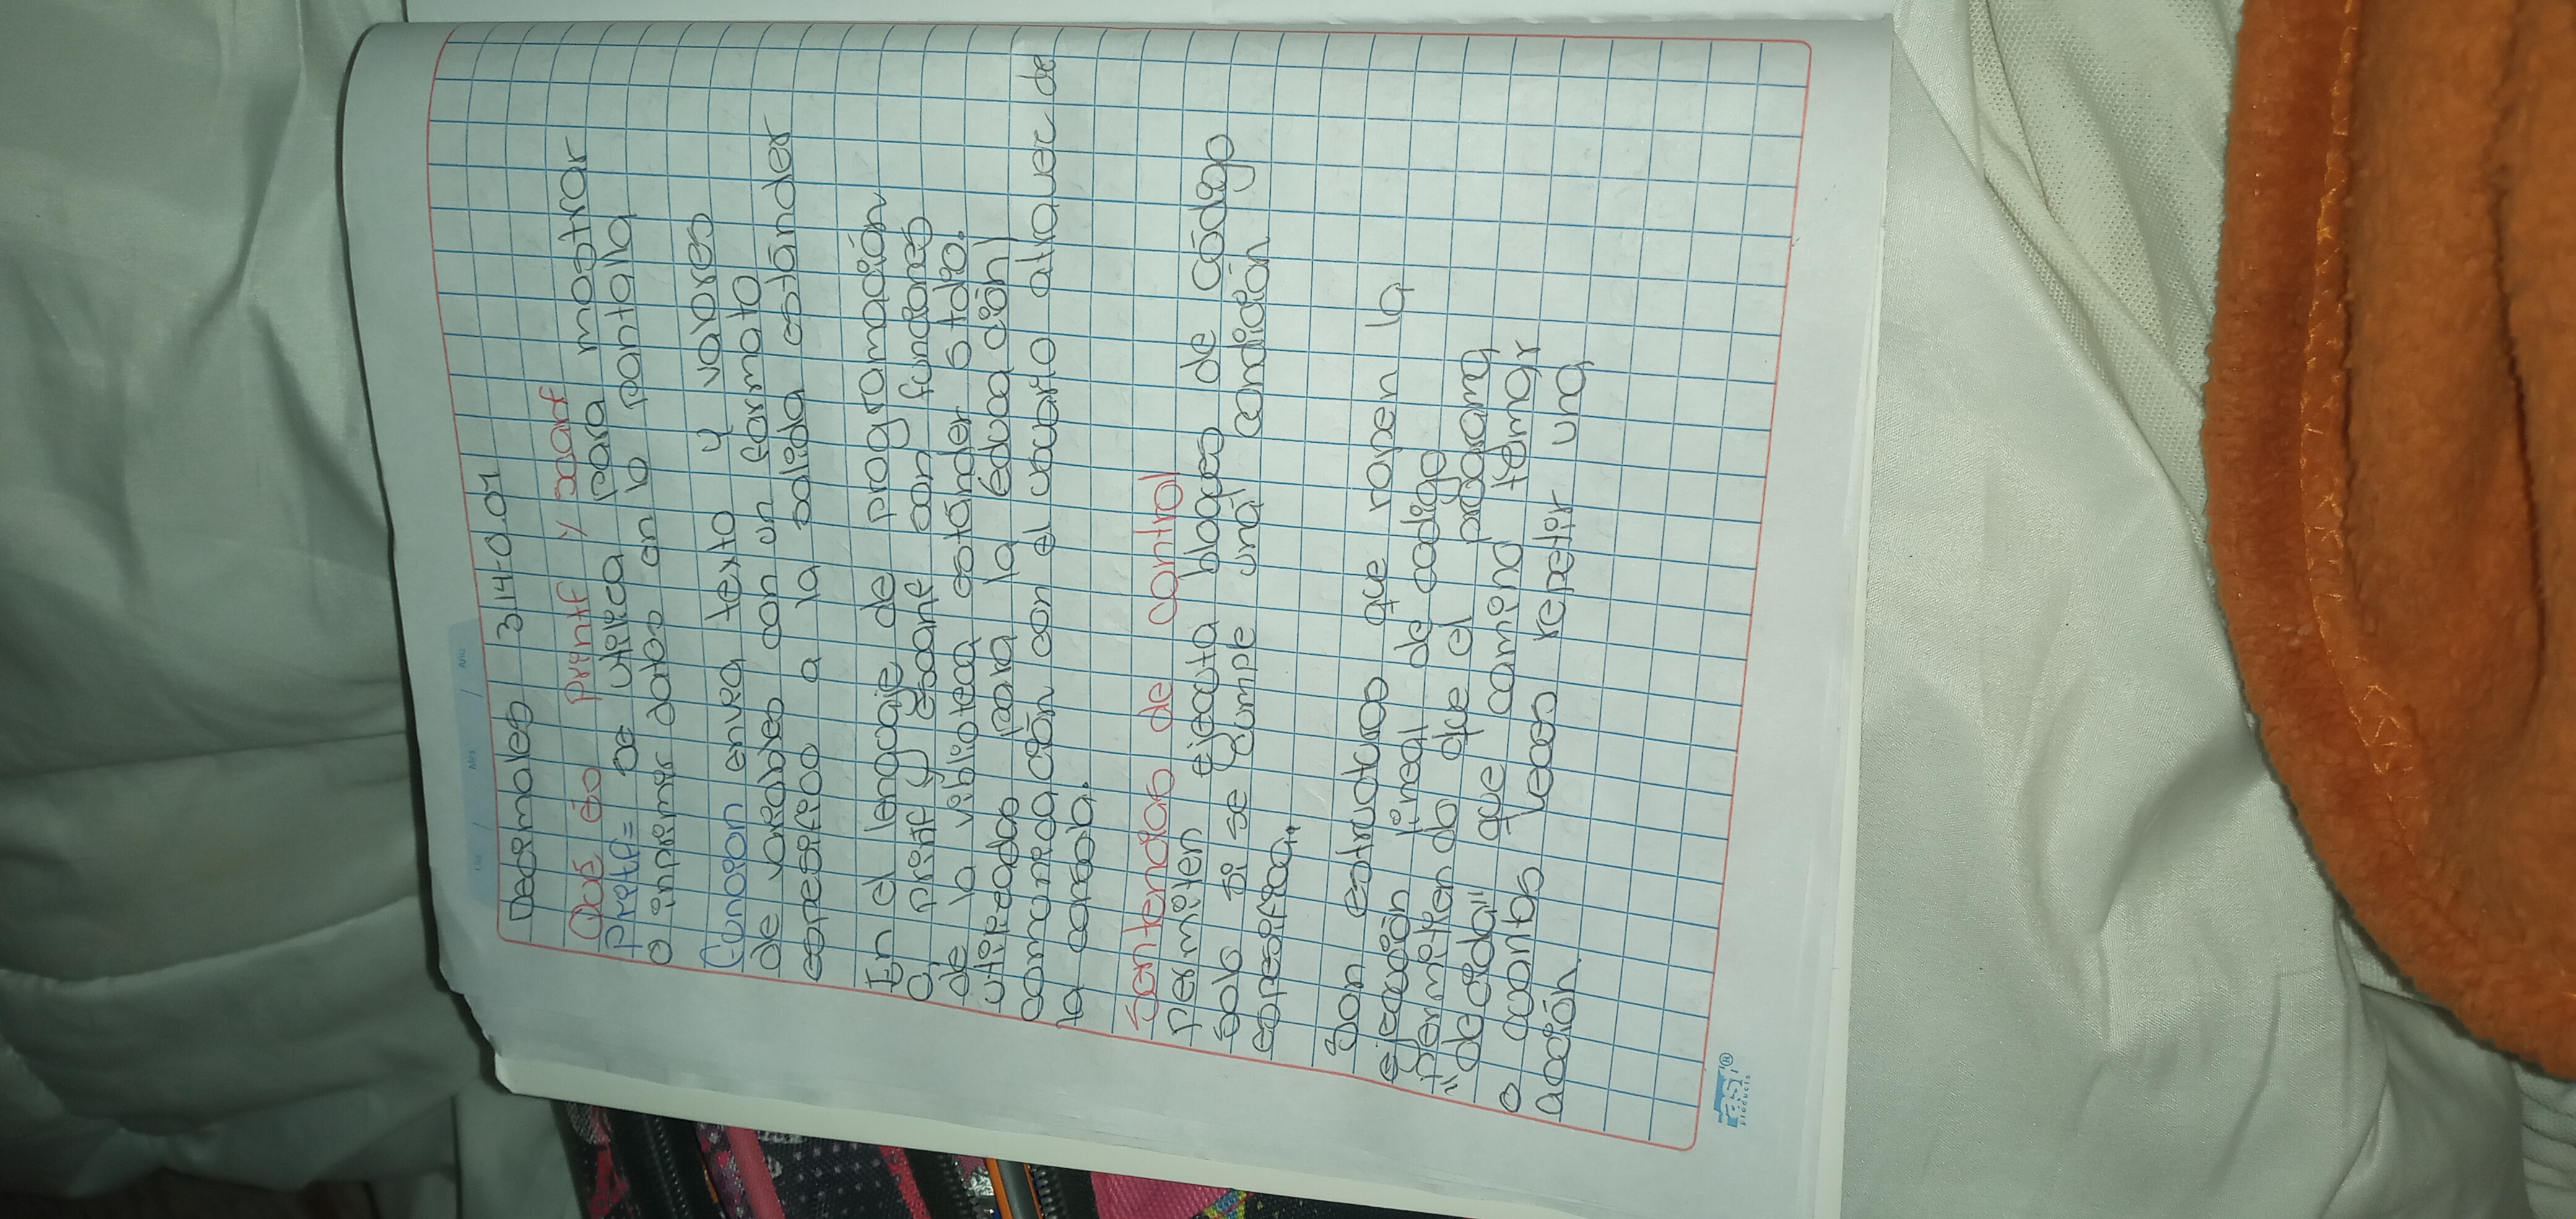 Día / Mes / Año
Decimales 3.14-0.01
Qué és printf y scanf
Printf= se utiliza para mostrar
o inprimir datos en la pantalla
Funcion envia texto y valores
de variables con un formato
espesifico a la salida estánder
En el lenguaje de programación
C, printf y escanf son funciones
de la viblioteca estánder stdio.
utilizadas para la
comunicación con el usuario através de
la consola.
Sentencias de control
Permiten ejecuta bloques de código
solo si se cumple una condición
espesifica.
Son estructuras que ropen la
ejecución lineal de codigo
permitiendo que el program
"decida" que camino tomar
o cuantas veces repetir una
acción.
fast® Products